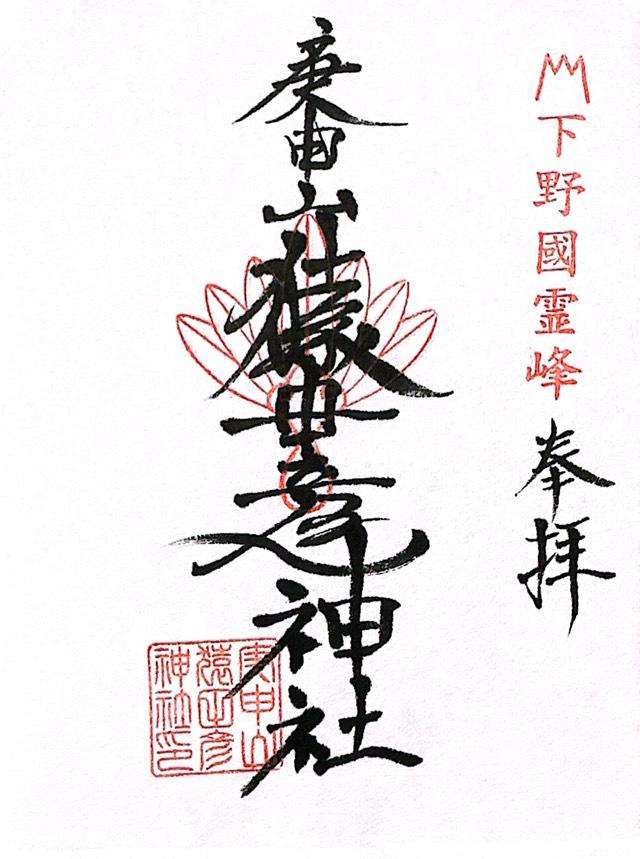 下野國霊峰 奉拝
庚申山猿田彦神社
庚申山
猿田彦
神社印